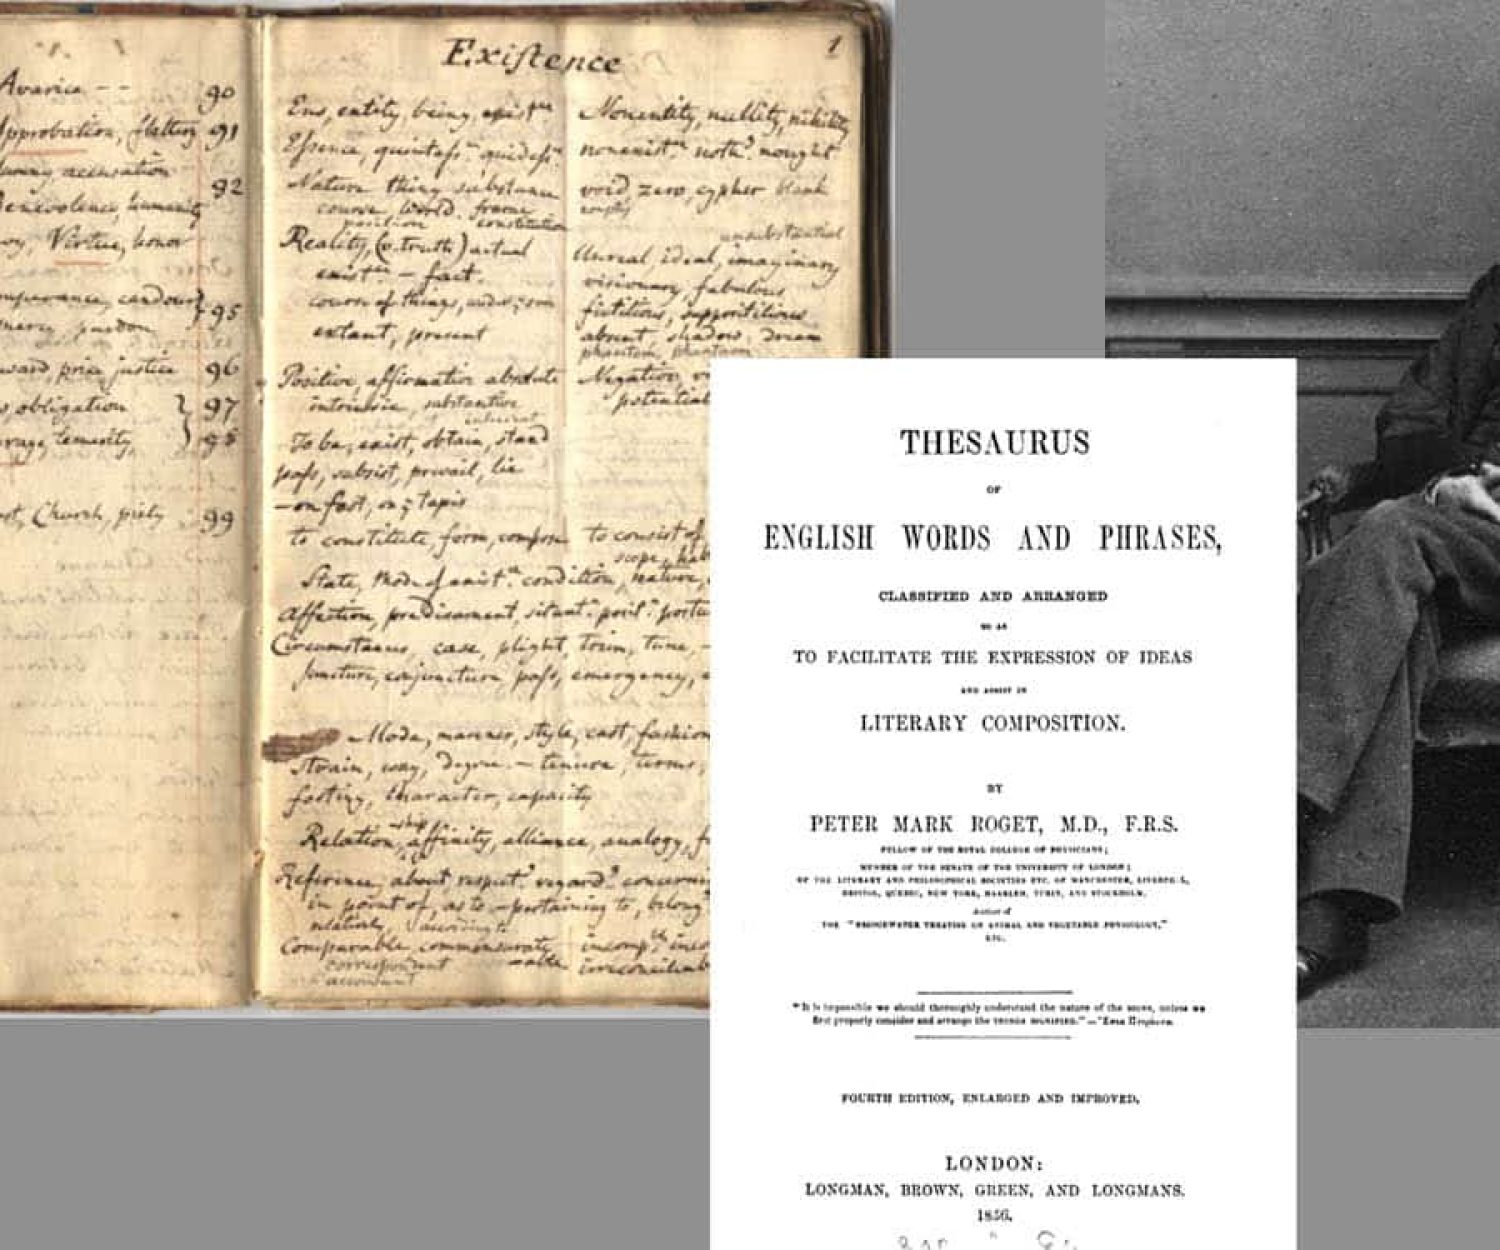 Avarice - - 90
Approbation, flattery 91
accusation
92
Benevolence, humanity
Virtue, honor
candour
95
pardon
price justice 96
obligation 97
tenacity 98
Church, piety 99
Existence 1
Ens, entity, being, exist^ce
Essence, quintess^n quidess^n
Nature thing substance
course, World. frame
position constitution
Reality, (v. truth) actual
exist^ce - fact.
course of things, under ye sun
extant, present
Positive, affirmative absolute
intrinsic, substantive
inherent
To be, exist, obtain, stand
pass, subsist, prevail, lie
- on foot, on ye tapis
to constitute, form, compose
State, Mode of exist^ce condition, nature,
Affection, predicament, situat^n posit^n
Circumstances, case, plight, trim, tune, -
juncture, conjuncture pass, emergency,
Mode, manner, style, cast, fashion
Strain, way, degree. - tenure, terms,
footing, character, capacity
Relation, -ship affinity, alliance, analogy,
Reference, about, respect^g regard^g
in point of, as to - pertaining to, belong
relatively, according to
Comparable, commensurate
correspondent
accordant
Nonentity, nullity, nihility
nonexist^ce noth^g nought
void, zero, cypher blank
empty
unsubstantial
Unreal, ideal, imaginary
visionary, fabulous
fictitious, supposititious
absent, shadow, dream
phantom, phantasm
Negative,
potential
to consist of,
scope, hab
THESAURUS
OF
ENGLISH WORDS AND PHRASES,
CLASSIFIED AND ARRANGED
SO AS
TO FACILITATE THE EXPRESSION OF IDEAS
AND ASSIST IN
LITERARY COMPOSITION.
BY
PETER MARK ROGET, M.D., F.R.S.
FELLOW OF THE ROYAL COLLEGE OF PHYSICIANS;
MEMBER OF THE SENATE OF THE UNIVERSITY OF LONDON;
OF THE LITERARY AND PHILOSOPHICAL SOCIETIES ETC. OF MANCHESTER, LIVERPOOL,
BRISTOL, QUEBEC, NEW YORK, HAARLEM, TURIN, AND STOCKHOLM.
Author of
THE "BRIDGEWATER TREATISE ON ANIMAL AND VEGETABLE PHYSIOLOGY,"
ETC.
"It is impossible we should thoroughly understand the nature of the signs, unless we
first properly consider and arrange the THINGS SIGNIFIED."
FOURTH EDITION, ENLARGED AND IMPROVED.
LONDON:
LONGMAN, BROWN, GREEN, AND LONGMANS.
1856.